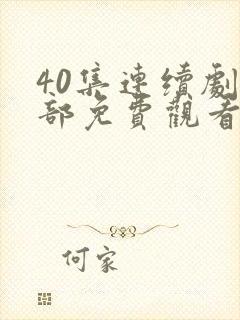 40集連續劇
部免費觀看
何家